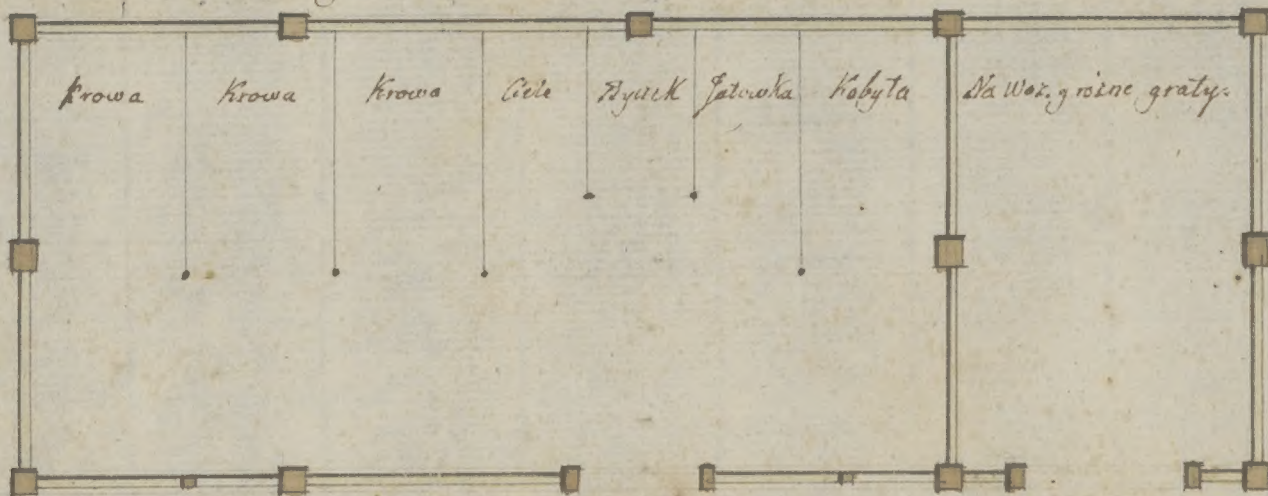 Krowa Krowa Krowa Ciele Byczek Jałowka Kobyła Na Woz. y rożne graty.